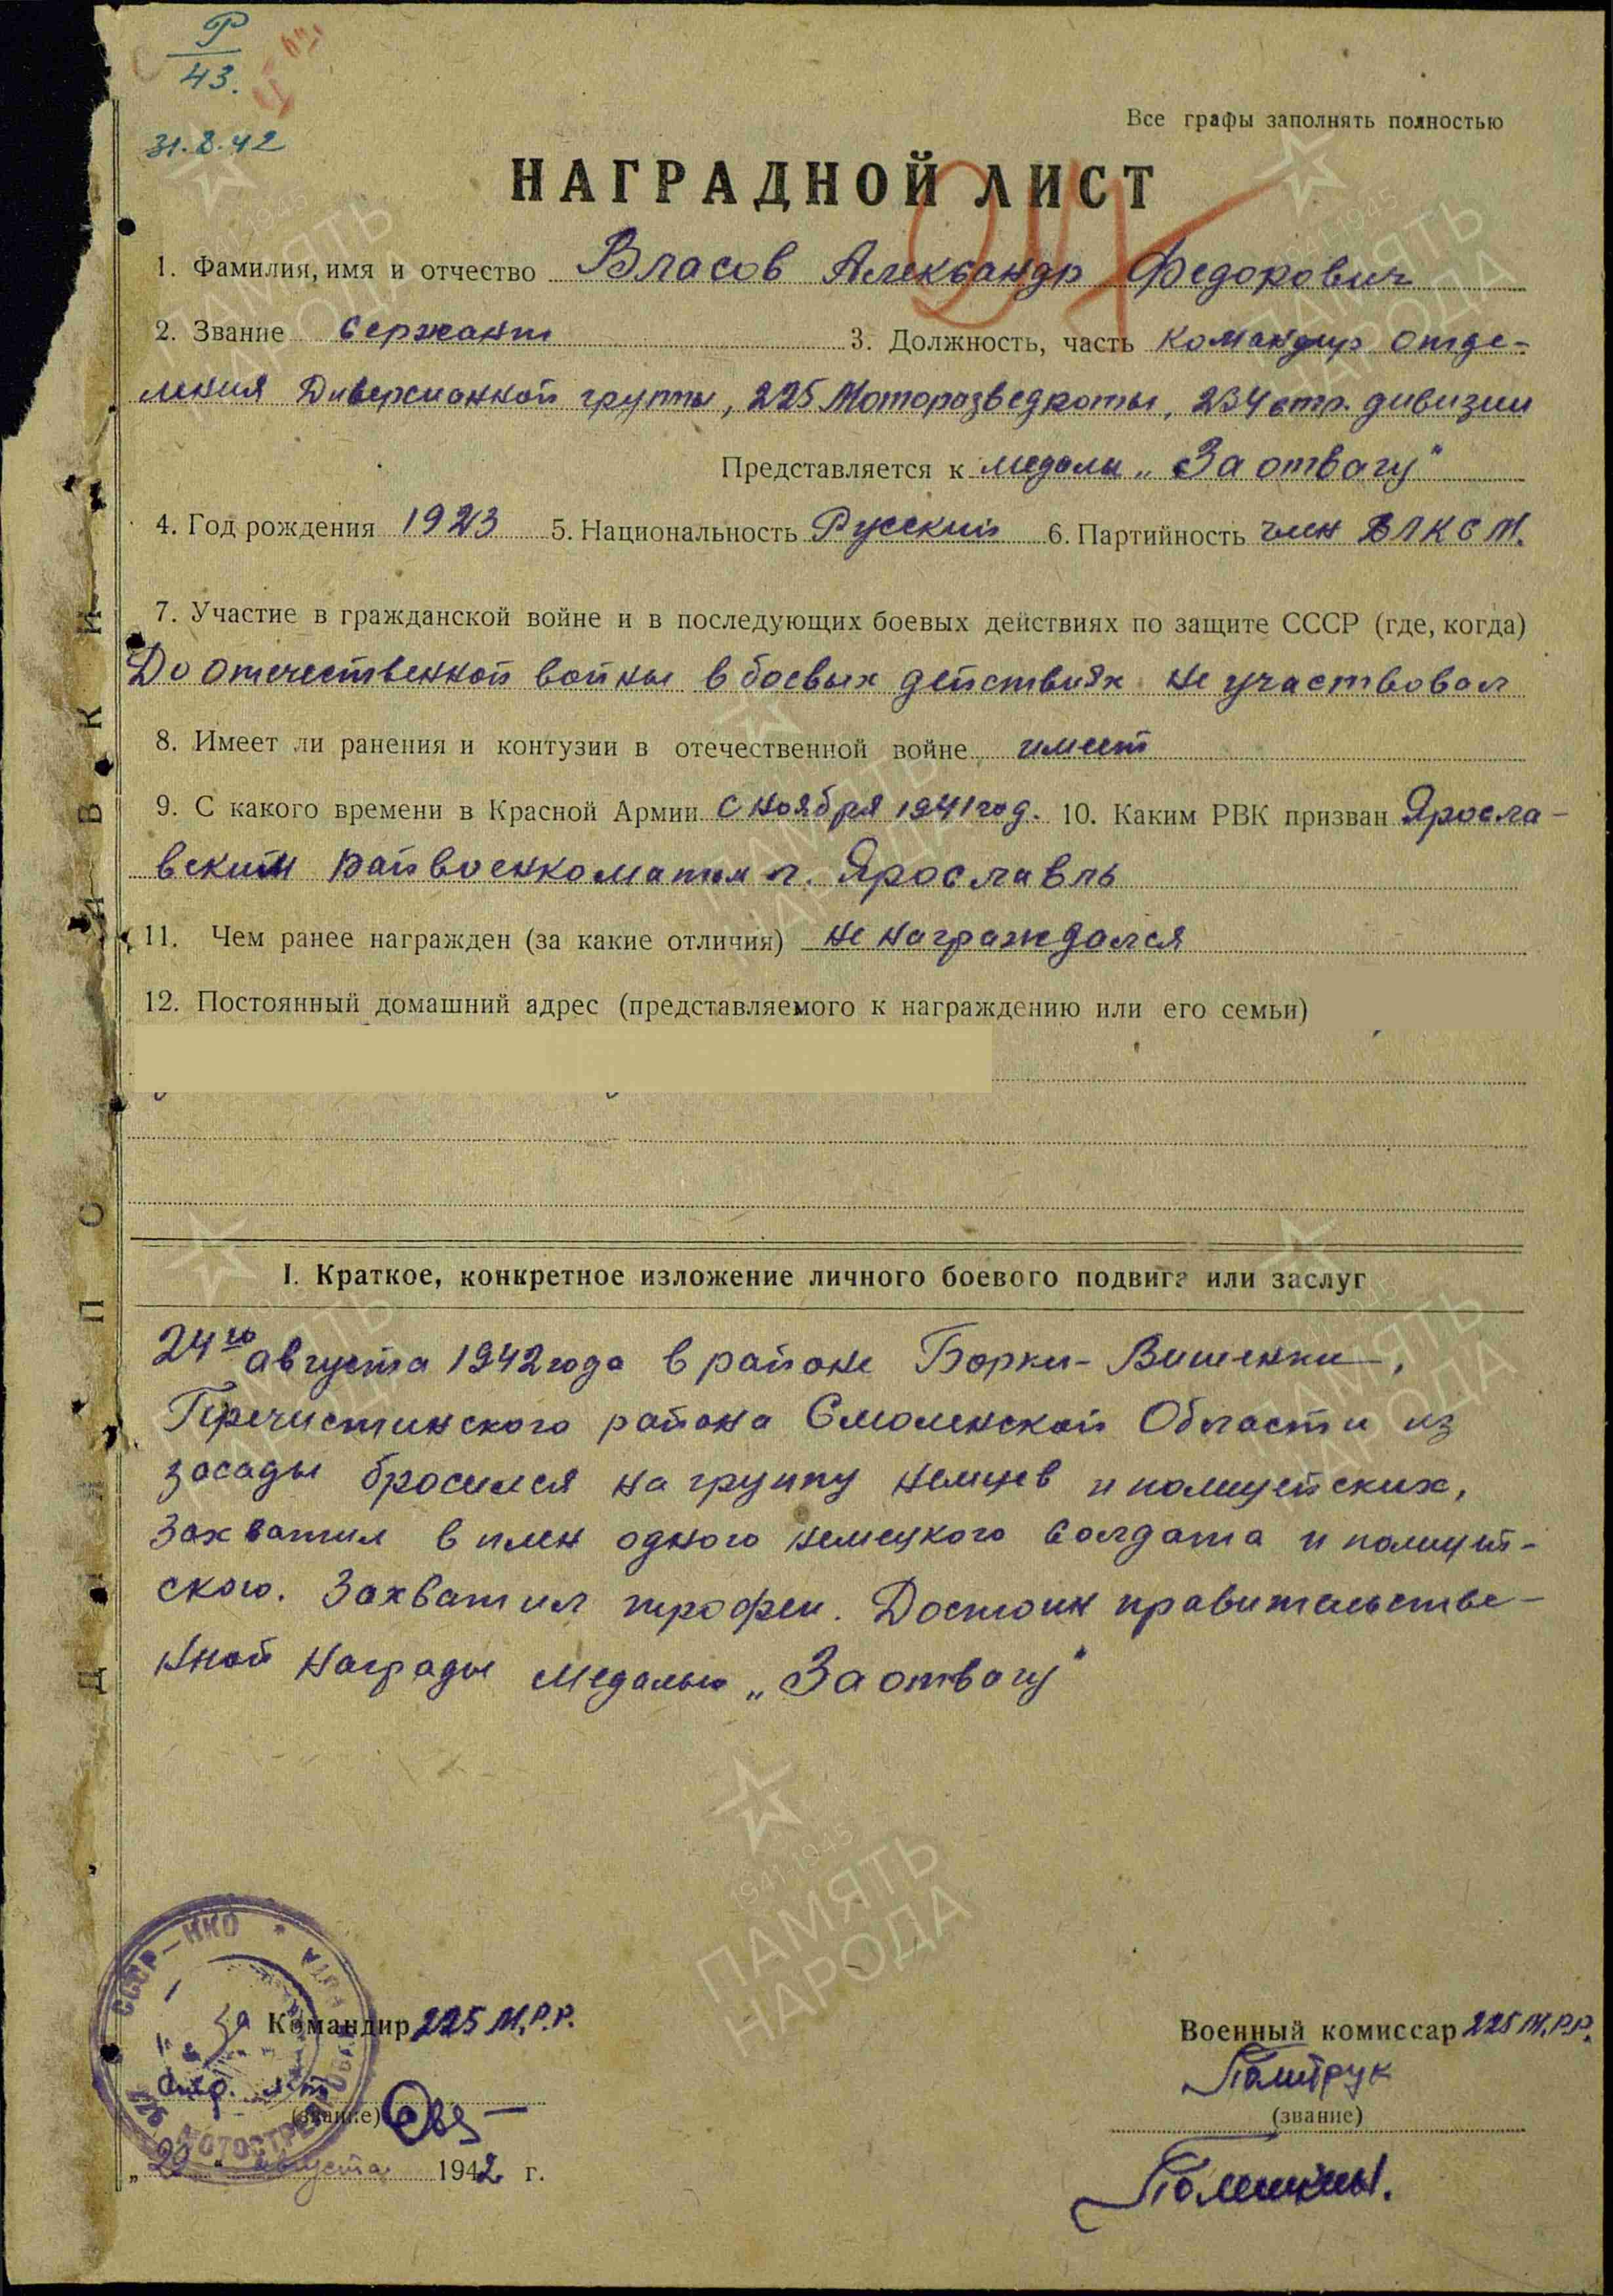 Р
43.
31.8.42
Все графы заполнять полностью
НАГРАДНОЙ ЛИСТ
1. Фамилия, имя и отчество Власов Александр Федорович
2. Звание сержант 3. Должность, часть командир отде-
ления Диверсионной группы, 225 Моторазведроты, 234 стр. дивизии
Представляется к медали „За отвагу"
4. Год рождения 1923 5. Национальность Русский 6. Партийность член ВЛКСМ.
7. Участие в гражданской войне и в последующих боевых действиях по защите СССР (где, когда)
До отечественной войны в боевых действиях не участвовал
8. Имеет ли ранения и контузии в отечественной войне имеет
9. С какого времени в Красной Армии с ноября 1941 год. 10. Каким РВК призван Яросла-
вским Райвоенкоматом г. Ярославль
11. Чем ранее награжден (за какие отличия) не награждался
12. Постоянный домашний адрес (представляемого к награждению или его семьи)
I. Краткое, конкретное изложение личного боевого подвига или заслуг
24го августа 1942 года в районе Борки-Вишенки,
Пречистинского района Смоленской Области из
засады бросился на группу немцев и полицейских,
Захватил в плен одного немецкого солдата и полицей-
ского. Захватил трофеи. Достоин правительстве-
нной награды медалью „За отвагу"
СССР-НКО
Командир 225 М.Р.Р.
Военный комиссар 225 М.Р.Р.
Политрук
(звание)
(звание)
августа 1942 г.
ДЛЯ ПОДШИВКИ
1941 1945
ПАМЯТЬ
НАРОДА